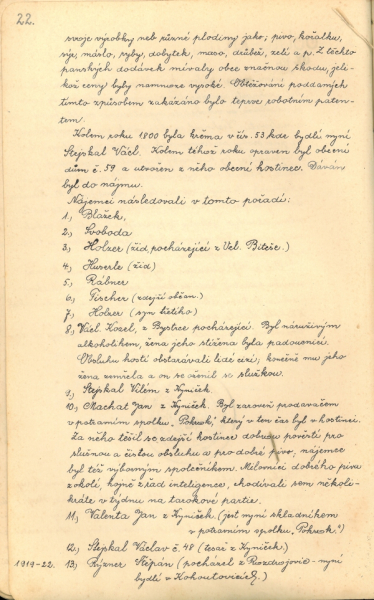 22.
svoje výrobky neb různé plodiny jako: pivo, kořalku,
sýr, máslo, ryby, dobytek, maso, drůbež, zelí a p. Z těchto
panských dodávek mívaly obce značnou škodu, jeli-
kož ceny byly namnoze vysoké. Obtěžování poddaných
tímto způsobem zakázáno bylo teprve robotním paten-
tem.
Kolem roku 1800 byla krčma v čís. 53 kde bydlí nyní
Stejskal Václ. Kolem téhož roku upraven byl obecní
dům č. 59 a utvořen z něho obecní hostinec. Dáván
byl do nájmu.
Nájemci následovali v tomto pořadí:
1., Blažek,
2., Svoboda
3., Holzer (žid, pocházející z Vel. Biteše.)
4., Huserle (žid)
5., Rábner
6., Fischer (zdejší občan.)
7., Holzer (syn 
8., Václ. Kozel, z Bystrce pocházející. Byl náruživým
alkoholikem, žena jeho stižena byla padoucnicí.
Obsluhu hostí obstarávali lidé cizí; konečně mu jeho
žena zemřela a on se oženil se služkou.
9., Stejskal Vilém z Kyniček.
10., Machat Jan z Kyniček. Byl zároveň prodavačem
v potravním spolku "Pokrok", který v ten čas byl v hostinci.
Za něho těšil se zdejší hostinec dobrou pověstí pro
slušnou a čistou obsluhu a pro dobré pivo, nájemce
byl též výborným společníkem. Milovníci dobrého piva
z okolí, hojně z řad inteligence, chodívali sem několi-
kráte v týdnu na tarokové partie.
11., Valenta Jan z Kyniček (jest nyní skladníkem
v potravním spolku "Pokrok.")
12., Stejskal Václav č. 48 (tesař z Kyniček.)
1919-22. 13., Rýzner Štěpán (pocházel z Rozdrojovic - nyní
bydlí v Kohoutovicích.)